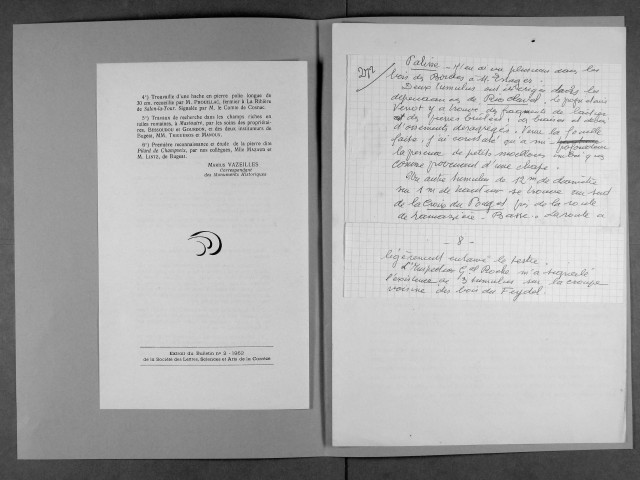 4°) Trouvaille d'une hache en pierre polie longue de
30 cm, recueillie par M. FROUILLAC, fermier à La Ribière
de Salon-la-Tour. Signalée par M. le Comte de Cosnac.
5°) Travaux de recherche dans les champs riches en
tuiles romaines, à MARGERIT, par les soins des propriétai-
res, BESSOUDOUX et GOURDON, et des deux instituteurs de
Eugeat, MM.
6°) Première reconnaissance et étude de la pierre dite
Péüad de Champseix, par nos collègues, Mlle MAZAUD et
M. LINTZ, de Bugeat.
MARIUS VAZEILLES,
Correspondant
des Monuments Historiques
Extrait du Bulletin n° 2 - 1953
de la Société des Lettres, Sciences et Arts de la Corrèze
Palisse - J'en ai vu plusieurs dans les
bois des Bordes à M.
Deux tumulus ont été érigés dans les
dépendances de le propriétaire
y a trouvé des fragments de
et des pierres brûlées, un
d'ossements dérangés. Pour la fouille
faite, j'ai constaté qu'à mi profondeur
la présence de petits moellons
comme provenant d'une chape.
Un autre tumulus de 12 m de diamètre
sur 1 m de hauteur se trouve au sud
de la Croix du près de la route
de - Basse. La route a
- 8 -
légèrement entamé le tertre.
L'Inspecteur Gal Roche m'a signalé
l'existence de 3 tumulus sur la croupe
voisine des bois du Feydel.